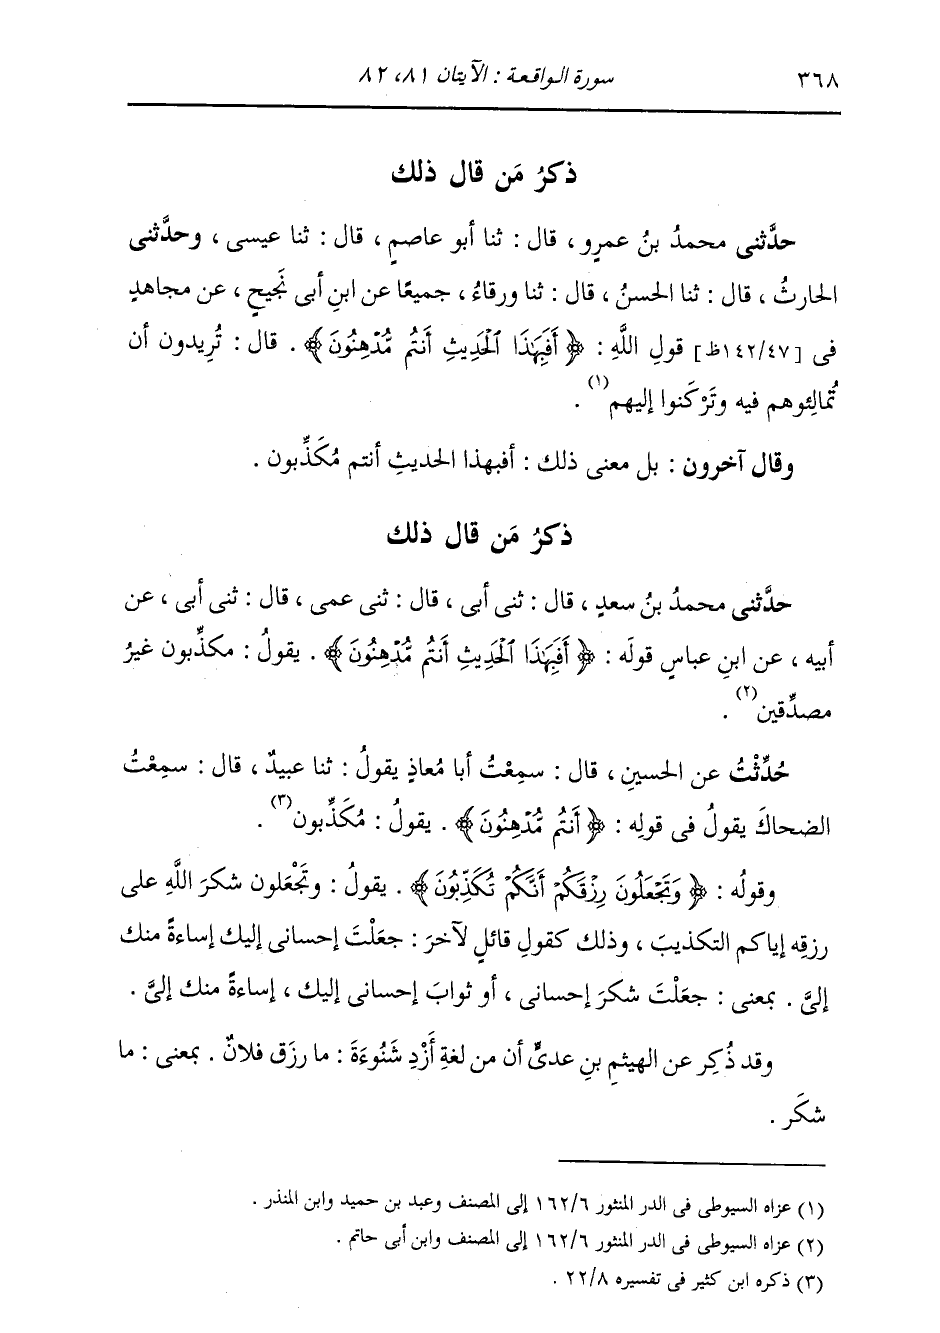 ٣٦٨ سورة الواقعة : الآيتان ٨١، ٨٢
ذكرُ مَن قال ذلك
حدَّثنى محمدُ بنُ عمرٍو ، قال : ثنا أبو عاصمٍ ، قال : ثنا عيسى ، وحدَّثنى
الحارثُ ، قال : ثنا الحسنُ ، قال : ثنا ورقاءُ ، جميعًا عن ابنِ أبى نَجيحٍ ، عن مجاهدٍ
فى [١٤٢/٤٧ظ] قولِ اللَّهِ : ﴿ أَفَبِهَٰذَا ٱلْحَدِيثِ أَنتُم مُّدْهِنُونَ ﴾ . قال : تُرِيدون أن
تُمالِئوهم فيه وتَرْكَنوا إليهم(١) .
وقال آخرون : بل معنى ذلك : أفبهذا الحديثِ أنتم مُكَذِّبون .
ذكرُ مَن قال ذلك
حدَّثنى محمدُ بنُ سعدٍ ، قال : ثنى أبى ، قال : ثنى عمى ، قال : ثنى أبى ، عن
أبيه ، عن ابنِ عباسٍ قولَه : ﴿ أَفَبِهَٰذَا ٱلْحَدِيثِ أَنتُم مُّدْهِنُونَ ﴾ . يقولُ : مكذِّبون غيرُ
مصدِّقين(٢) .
حُدِّثْتُ عن الحسينِ ، قال : سمِعْتُ أبا مُعاذٍ يقولُ : ثنا عبيدٌ ، قال : سمِعْتُ
الضحاكَ يقولُ فى قولِه : ﴿ أَنتُم مُّدْهِنُونَ ﴾ . يقولُ : مُكَذِّبون(٣) .
وقولُه : ﴿ وَتَجْعَلُونَ رِزْقَكُمْ أَنَّكُمْ تُكَذِّبُونَ ﴾ . يقولُ : وتَجْعَلون شكرَ اللَّهِ على
رزقِه إياكم التكذيبَ ، وذلك كقولِ قائلٍ لآخرَ : جعَلْتَ إحسانى إليك إساءةً منك
إلىَّ . بمعنى : جعَلْتَ شكرَ إحسانى ، أو ثوابَ إحسانى إليك ، إساءةً منك إلىَّ .
وقد ذُكِر عن الهيثمِ بنِ عدىٍّ أن من لغةِ أَزْدِ شَنُوءَةَ : ما رزَق فلانٌ . بمعنى : ما
شكَر .
(١) عزاه السيوطى فى الدر المنثور ١٦٢/٦ إلى المصنف وعبد بن حميد وابن المنذر .
(٢) عزاه السيوطى فى الدر المنثور ١٦٢/٦ إلى المصنف وابن أبى حاتم .
(٣) ذكره ابن كثير فى تفسيره ٢٢/٨ .